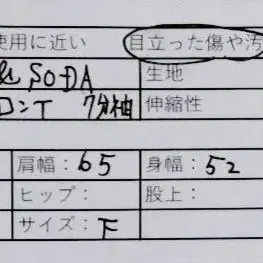 使用に近い 目立った傷や汚
& SODA 生地
ロンT 7分袖 伸縮性
肩幅：65 身幅：52
ヒップ： 股上：
サイズ：F